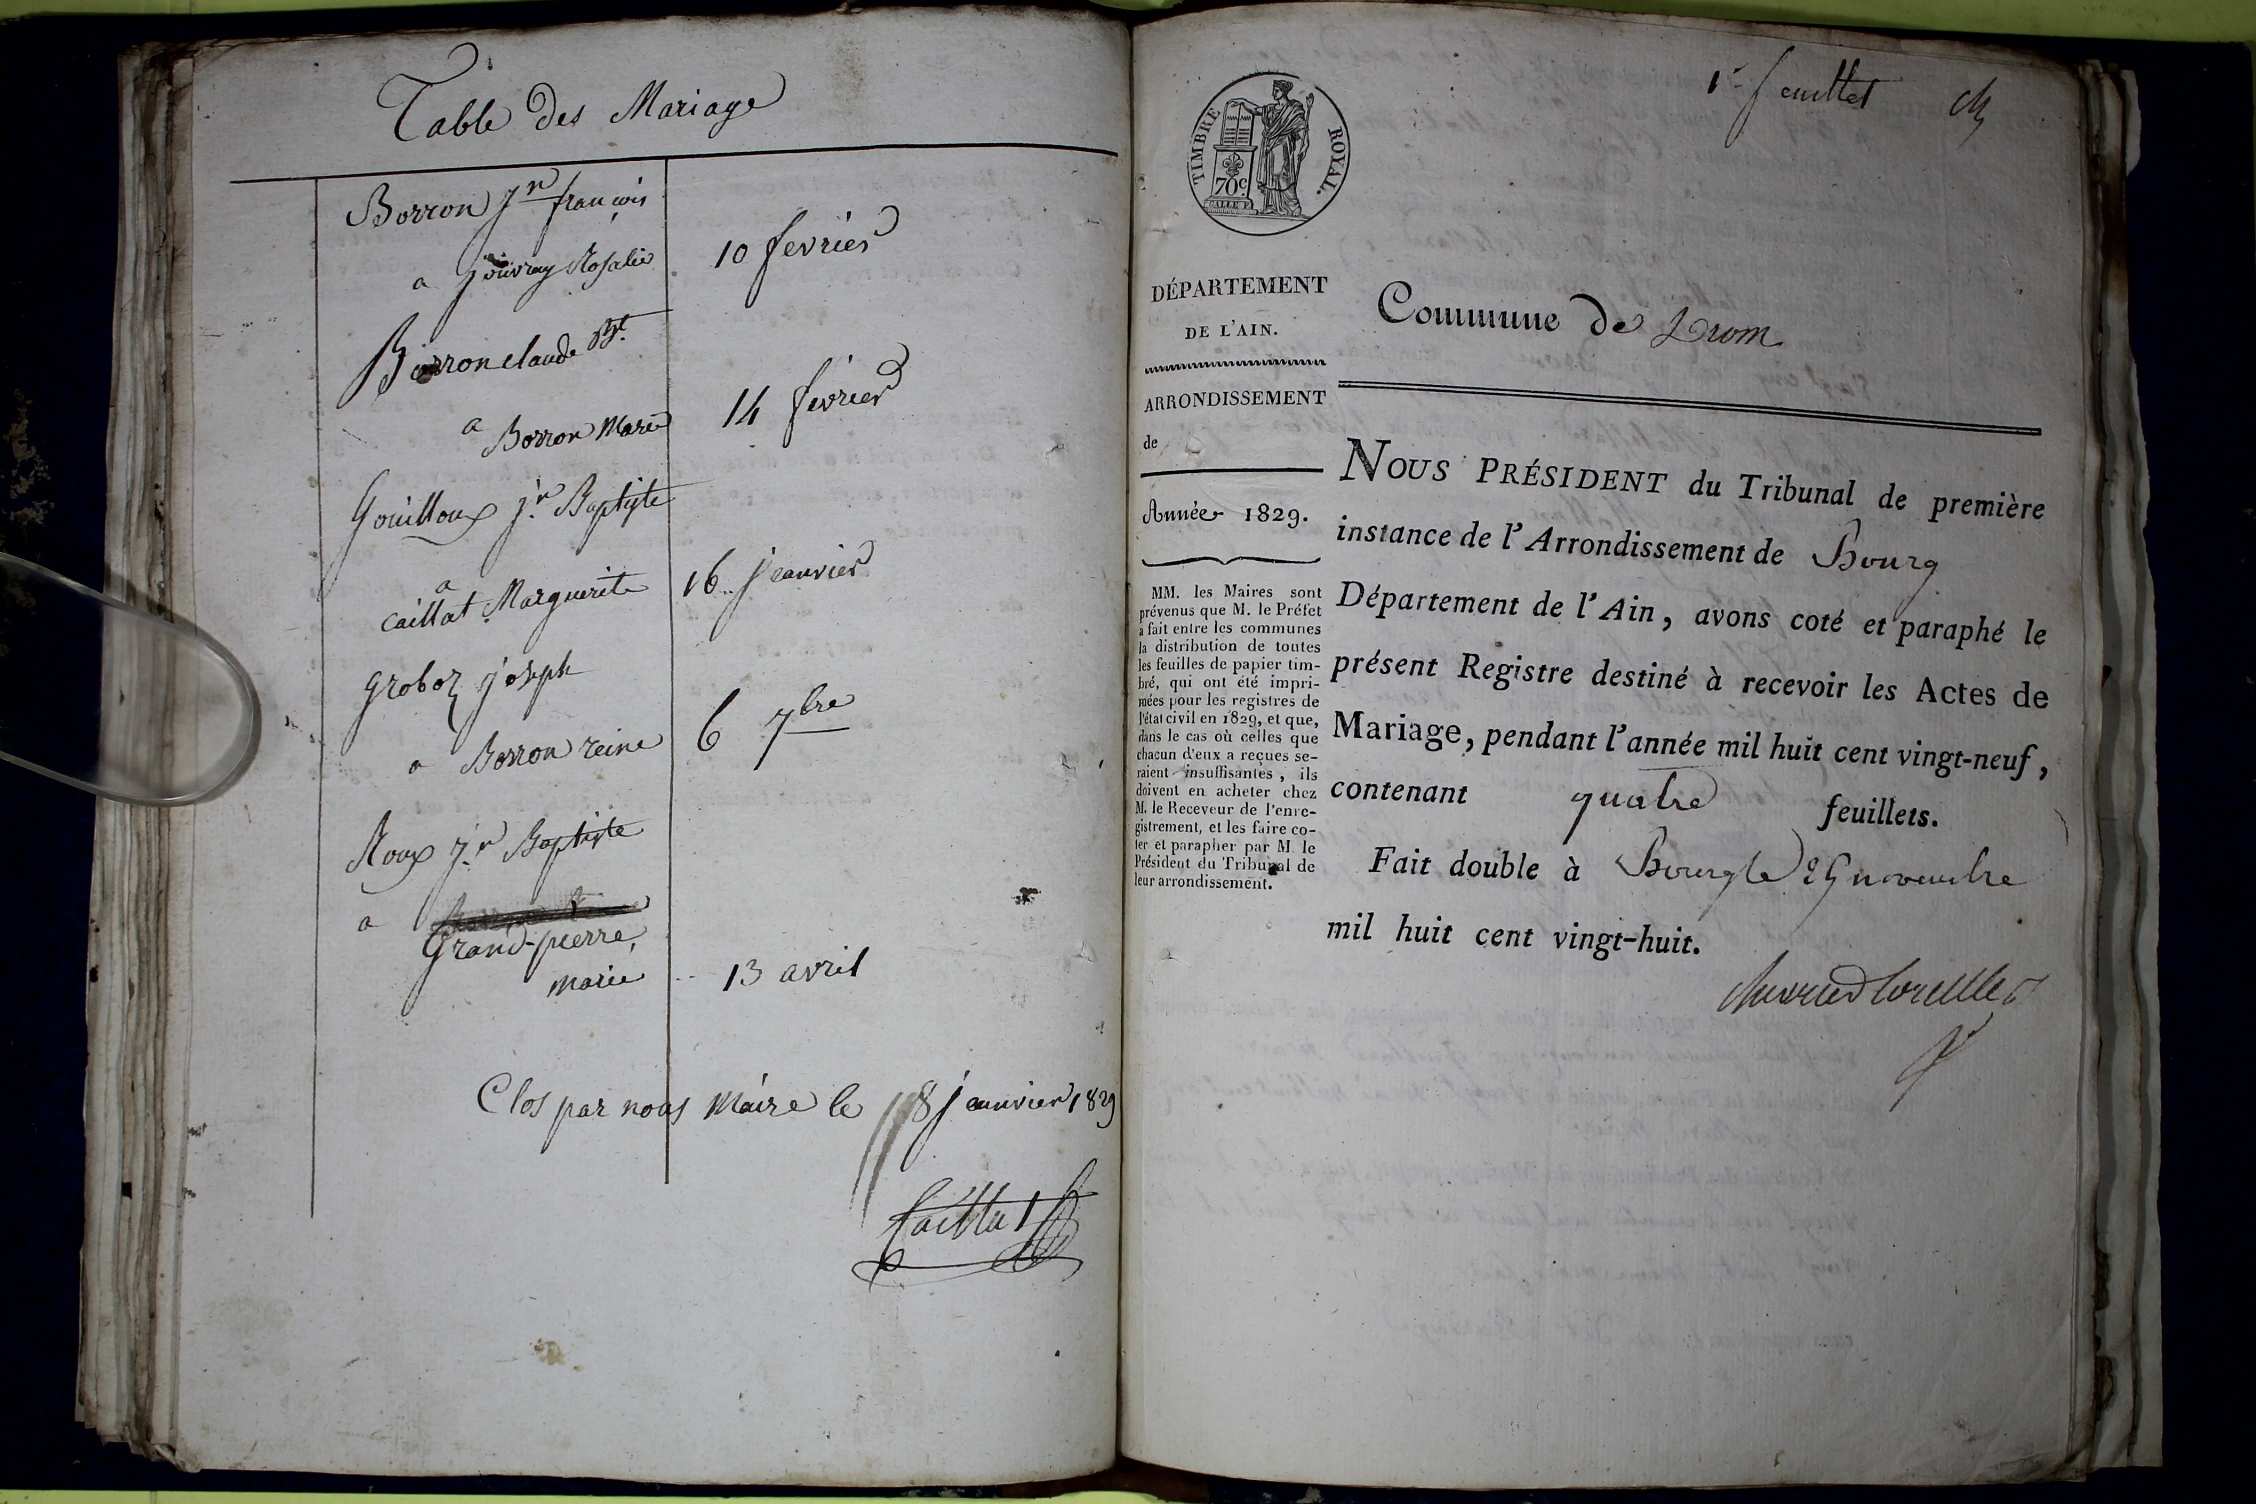 Table des Mariage
Borron jn françois
a jouvray Rosalie
10 fevrier
Borron claude Bt.
a Borron Marie
14 fevrier
Gouilloux jn Baptiste
a
caillat Marguerite
16 jeanvier
Groboz joseph
a Borron reine
6 7bre
Roux jn Baptiste
a
Grand-pierre,
marie
13 avril
Clos par nous Maire le 18 jeanvier 1829
Caillat
1er feuillet
TIMBRE ROYAL.
70c.
DÉPARTEMENT
DE L'AIN.
ARRONDISSEMENT
de
Année 1829.
MM. les Maires sont
prévenus que M. le Préfet
a fait entre les communes
la distribution de toutes
les feuilles de papier tim-
bré, qui ont été impri-
mées pour les registres de
l'état civil en 1829, et que,
dans le cas où celles que
chacun d'eux a reçues se-
raient insuffisantes, ils
doivent en acheter chez
M. le Receveur de l'enre-
gistrement, et les faire co-
ter et parapher par M. le
Président du Tribunal de
leur arrondissement.
Commune de Drom
NOUS PRÉSIDENT du Tribunal de première
instance de l'Arrondissement de Bourg
Département de l'Ain, avons coté et paraphé le
présent Registre destiné à recevoir les Actes de
Mariage, pendant l'année mil huit cent vingt-neuf,
contenant quatre feuillets.
Fait double à Bourg le 29 novembre
mil huit cent vingt-huit.